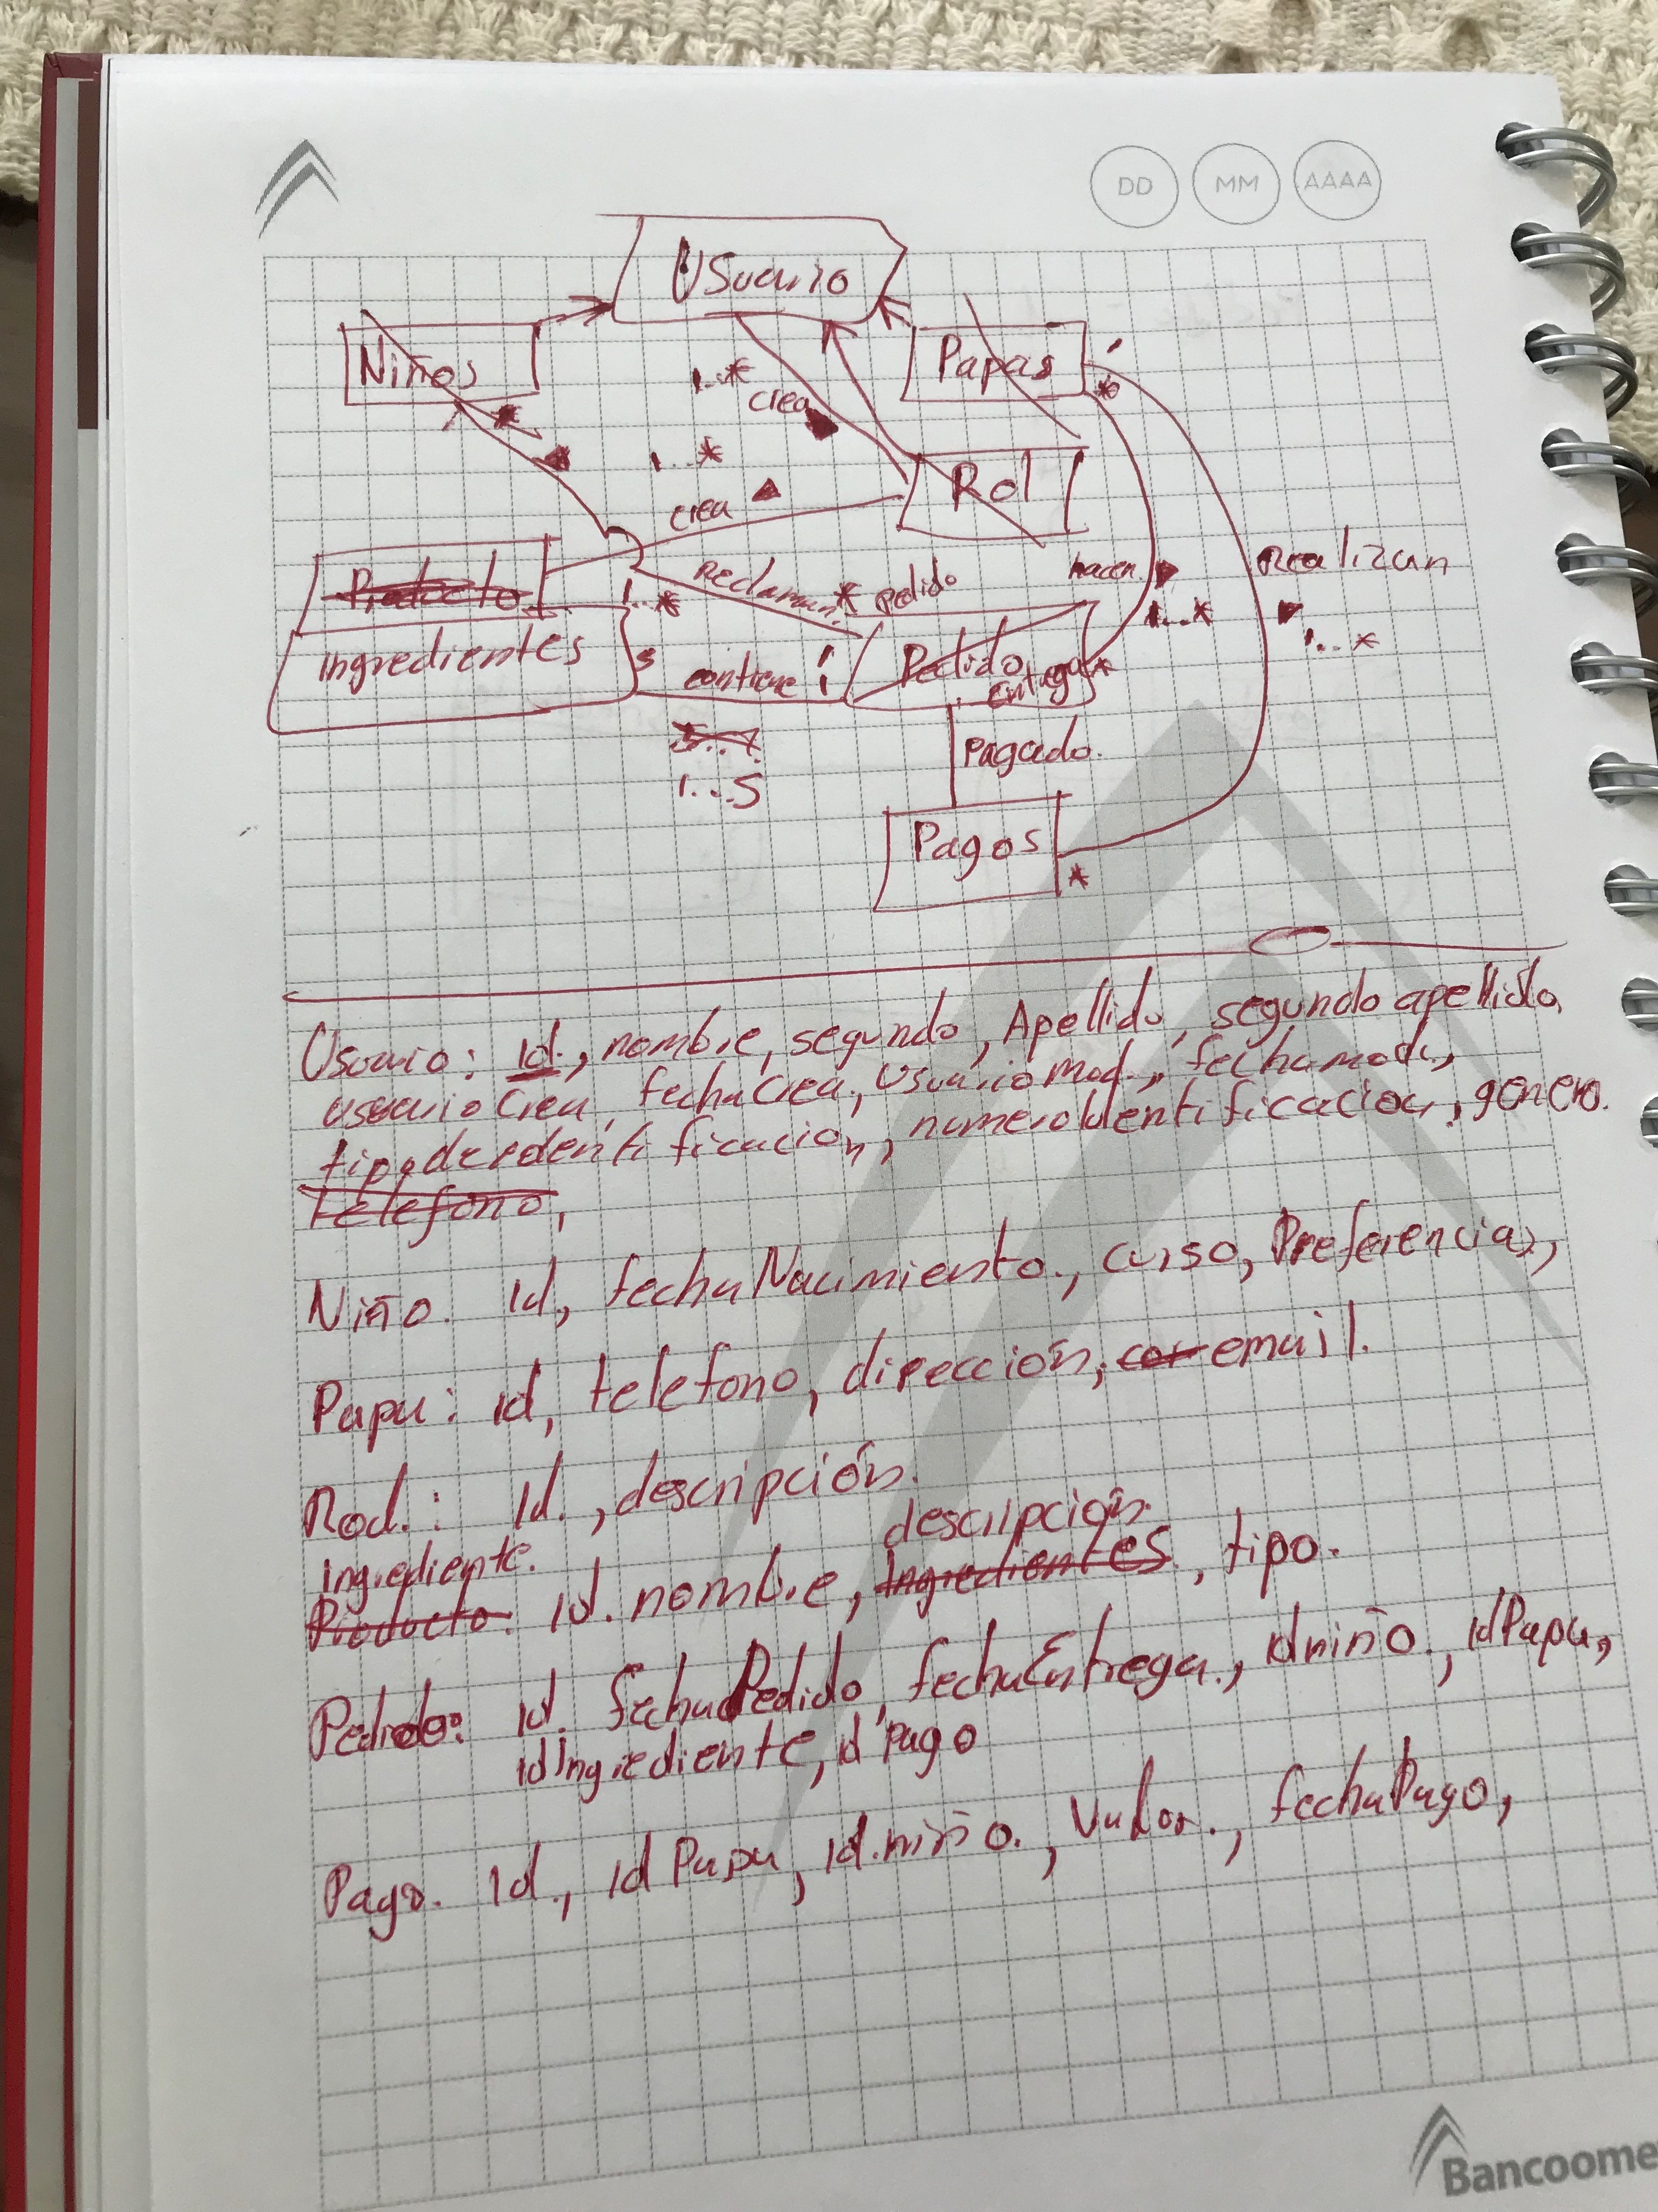 DD MM AAAA
Usuario
Niños
Papas
1
*
1..*
crea
*
1..*
Rol
crea
Producto
Reclaman
*
pedido
hacen
Realizan
1..*
1..*
1..*
ingredientes
5
contiene
1
Pedido
entrega
*
1...5
Pagado.
Pagos
*
Usuario: id., nombre, segundo, Apellido, segundo apellido,
usuarioCrea, fechaCrea, UsuarioMod., fechamod.,
tipodeidentificacion, numeroIdentificacion, genero.
telefono,
Niño. Id, fechaNacimiento., curso, Preferencias,
Papa: id, telefono, dirección, cor email.
Rod.: Id., descripción.
Ingrediente. descripción.
Producto: Id. nombre, Ingredientes, tipo.
Pedido: id. fechaPedido, fechaEntrega., idniño., idPapa,
idIngrediente, id Pago
Pago. Id., id Papa, id.niño., Valor., fechaPago,
Bancoome